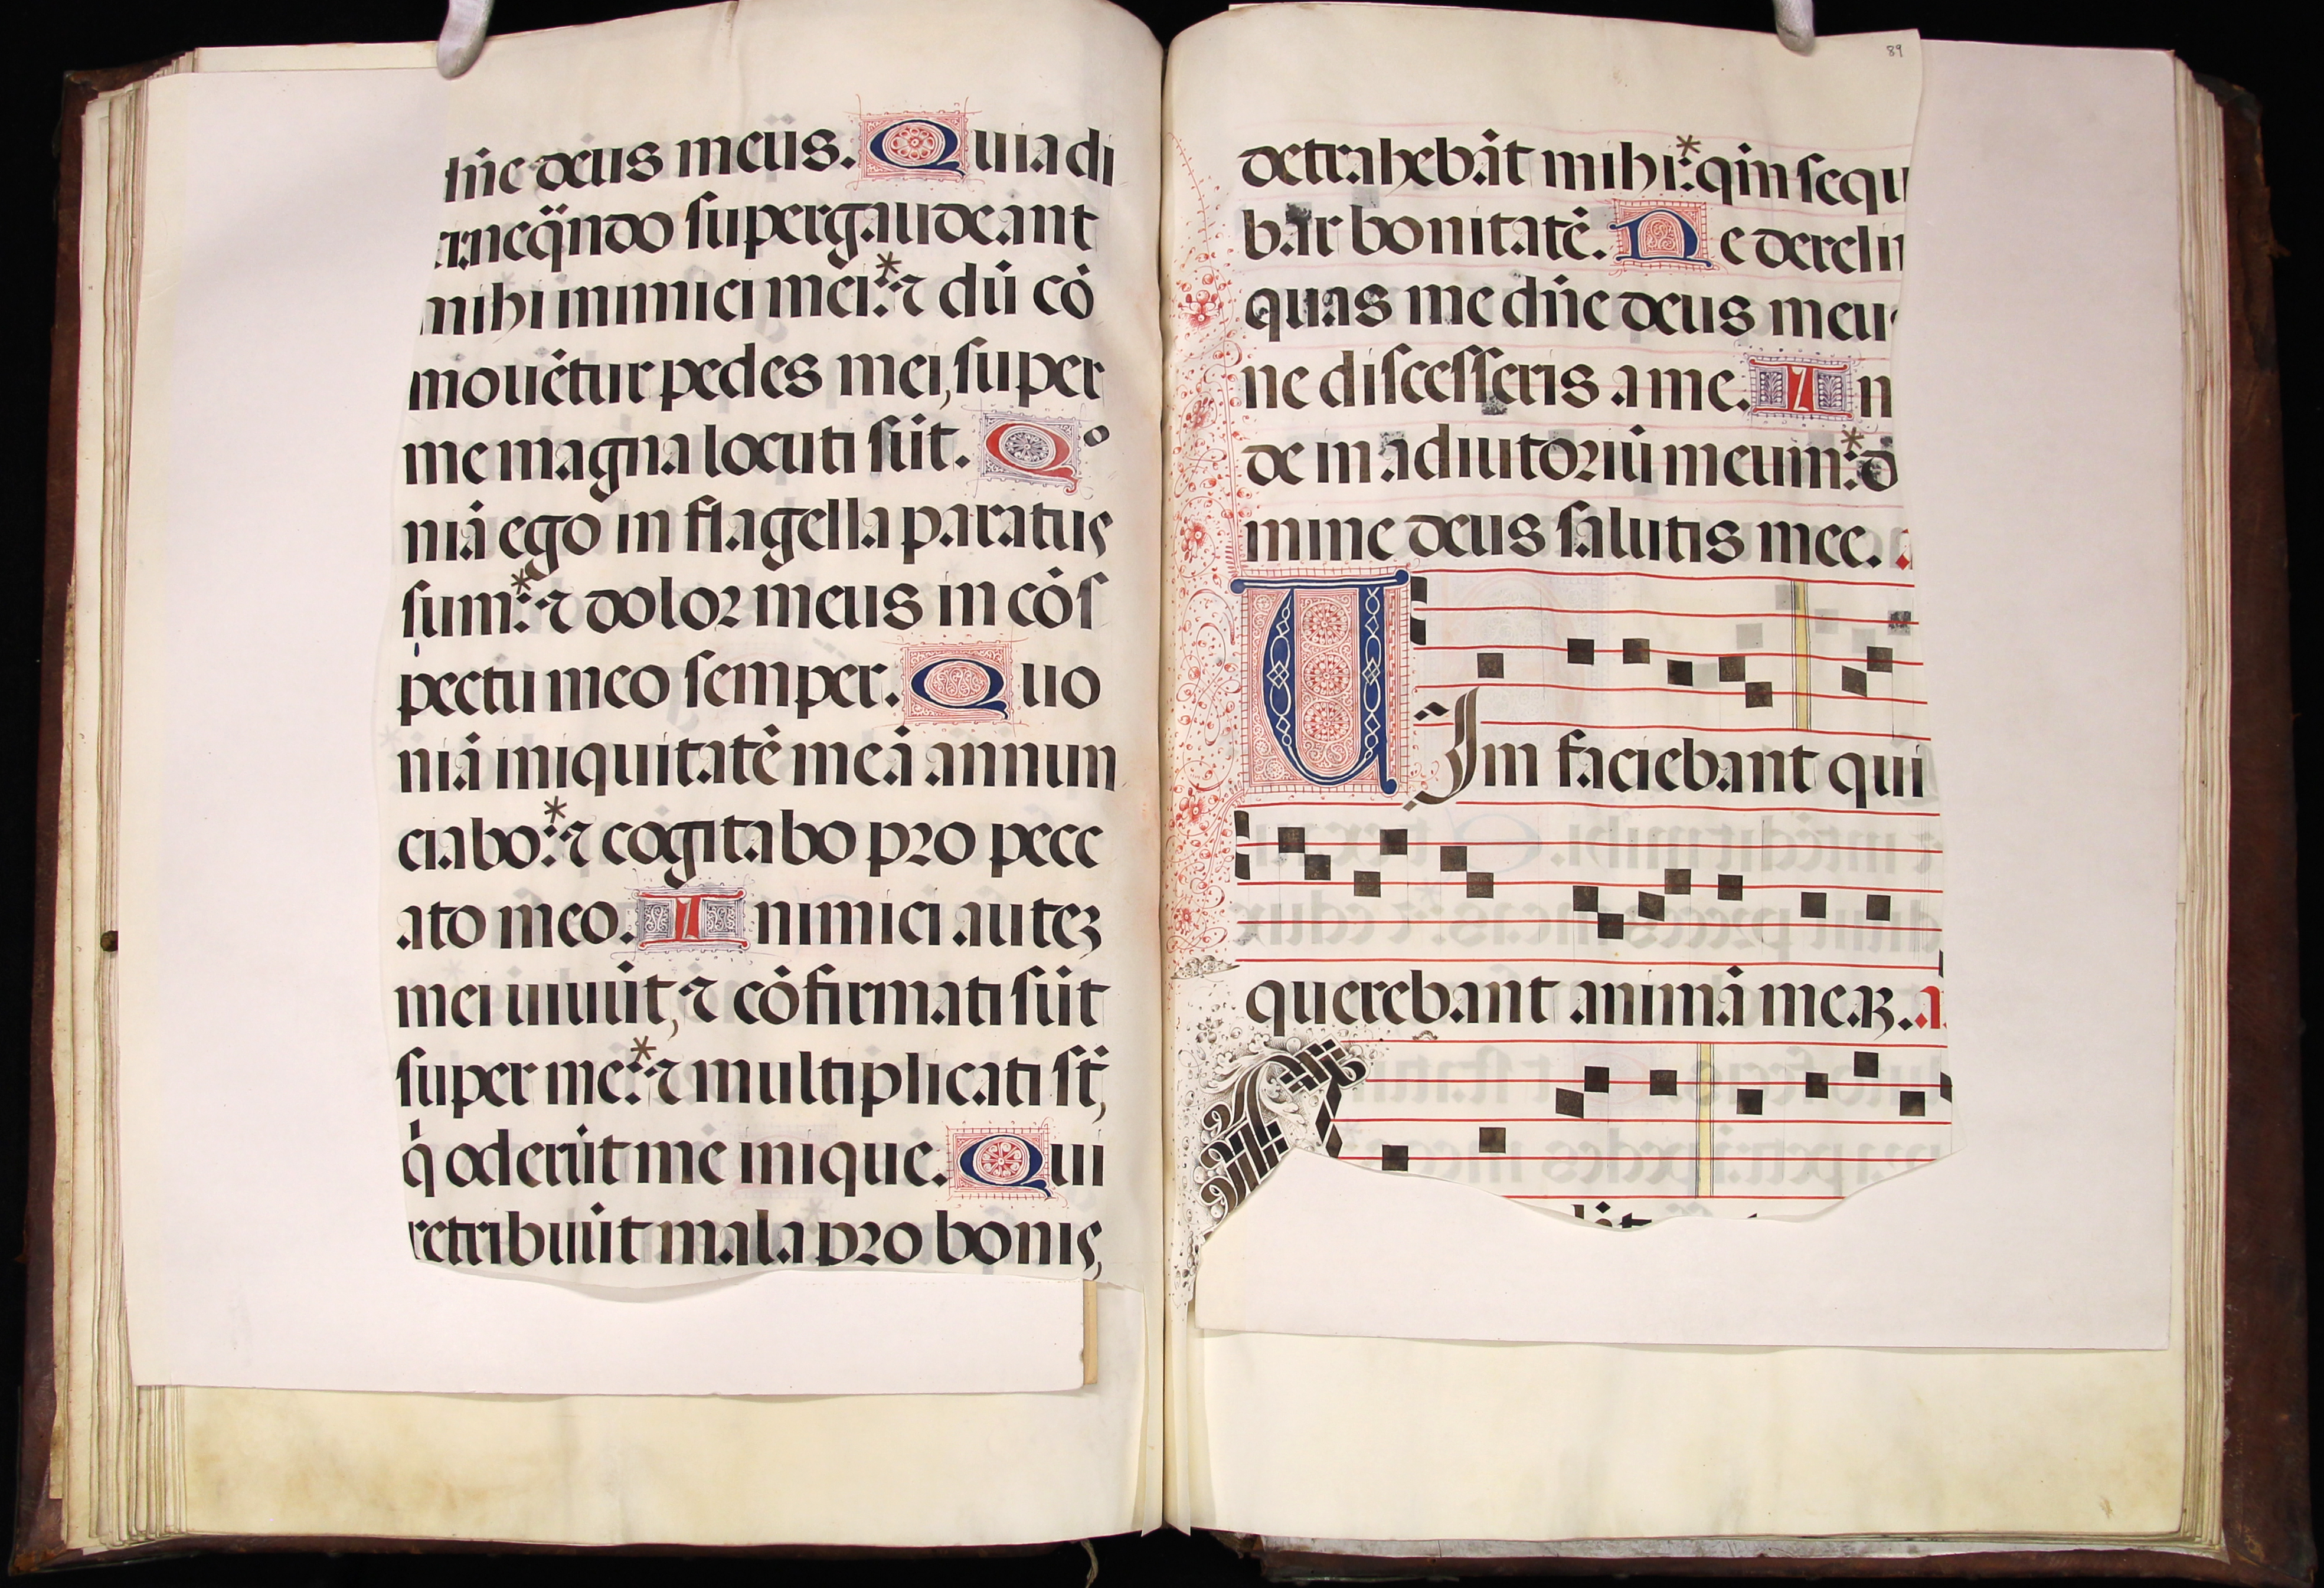 dn̄e deus meus. Quia di
xi neq̈ndo supergaudeant
mihi inimici mei:* ⁊ dū cō
mouētur pedes mei, super
me magna locuti sūt. Qo
niā ego in flagella paratus
sum:* ⁊ dolor meus in cōs
pectu meo semper. Quo
niā iniquitatē meā annun
ciabo:* ⁊ cogitabo pro pecc
ato meo. Inimici auteʒ
mei uiuūt, ⁊ cōfirmati sūt
super me:* ⁊ multiplicati st̄,
q̇ oderūt me inique. Qui
retribuūt mala pro bonis,
89
detrahebāt mihi:* qm̄ sequ
bar bonitatē. Ne derelin
quas me dn̄e deus meus
ne discesseris a me. In
de in adiutoriū meum:* d
mine deus salutis mee.
Uim faciebant qui
querebant animā meaʒ. a